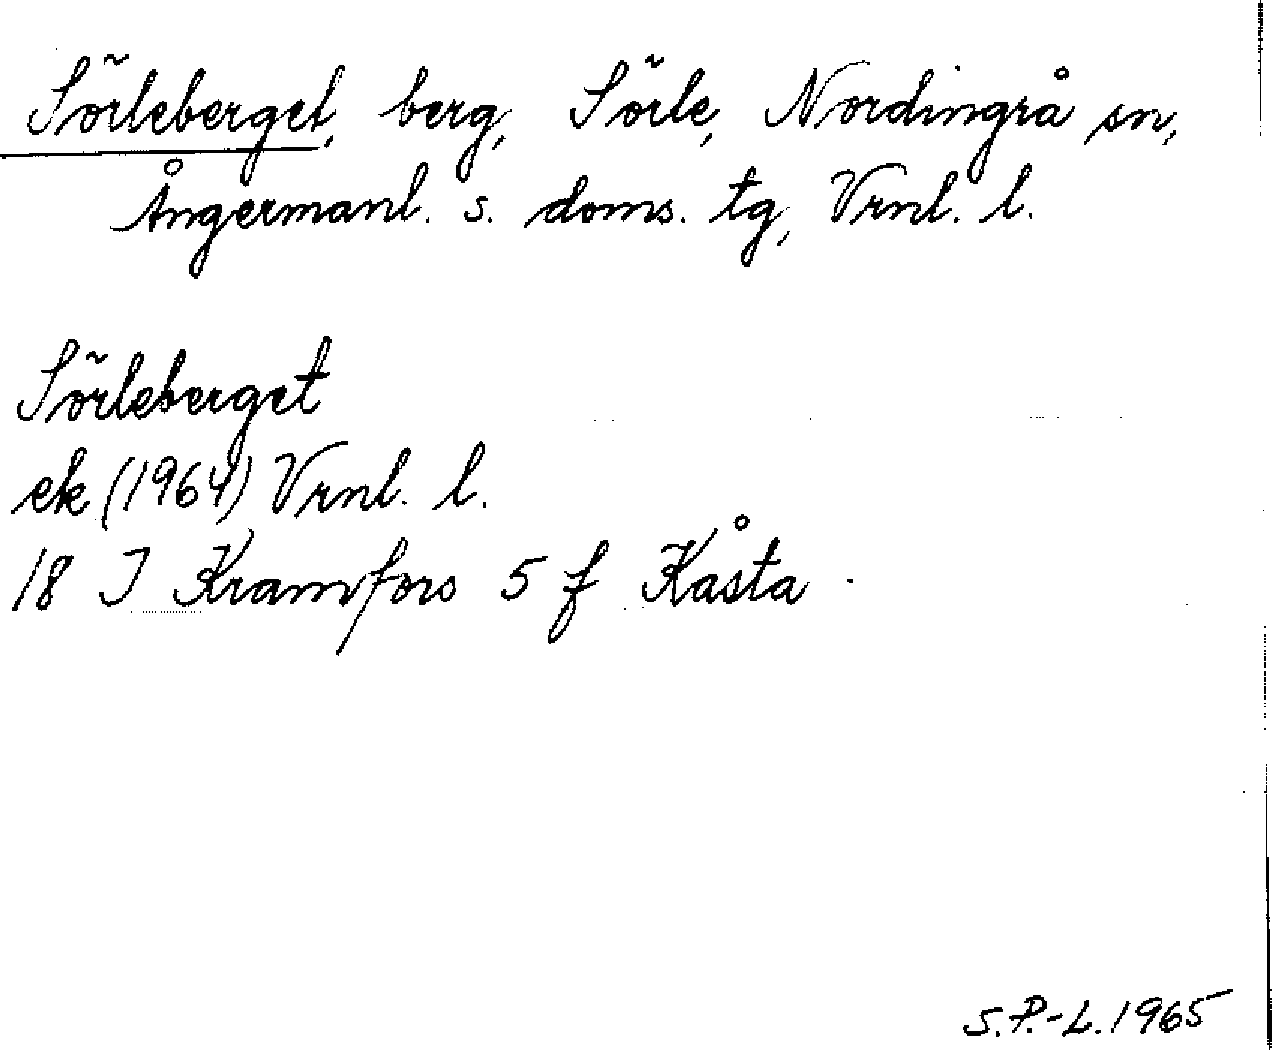 Sörleberget, berg, Sörle, Nordingrå sn,
Ångermanl. s. doms. tg, Vrnl. l.
Sörleberget
ek (1964) Vrnl. l.
18 I Kramfors 5 f Kåsta.
S.P.-L. 1965